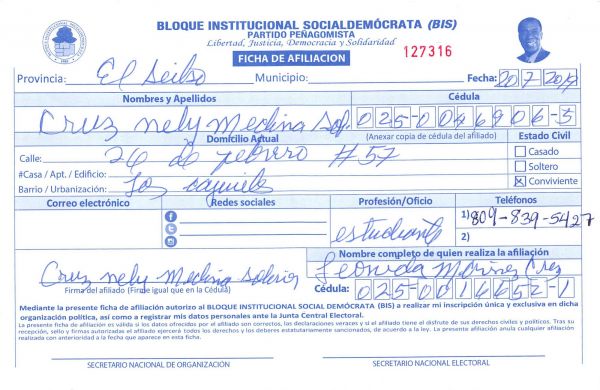 BLOQUE INSTITUCIONAL SOCIALDEMÓCRATA (BIS)
PARTIDO PEÑAGOMISTA
Libertad, Justicia, Democracia y Solidaridad
FICHA DE AFILIACION
127316
Provincia: El Seibo Municipio: Fecha: 20-7-2019
Nombres y Apellidos Cédula
Cruz nely Medina Sof. 025-0046906-5
Domicilio Actual (Anexar copia de cédula del afiliado) Estado Civil
Calle: 26 de febrero #57 Casado
#Casa / Apt. / Edificio: Soltero
Barrio / Urbanización: Los Conviviente
Correo electrónico Redes sociales Profesión/Oficio Teléfonos
estudiante 1) 809-839-5427
2)
Nombre completo de quien realiza la afiliación
Cruz nely Medina Leonida Cruz
Firma del afiliado (Firme igual que en la Cédula) Cédula: 025-0016652-1
Mediante la presente ficha de afiliación autorizo al BLOQUE INSTITUCIONAL SOCIAL DEMÓCRATA (BIS) a realizar mi inscripción única y exclusiva en dicha
organización política, así como a registrar mis datos personales ante la Junta Central Electoral.
La presente ficha de afiliación es válida si los datos ofrecidos por el afiliado son correctos, las declaraciones veraces y si el afiliado tiene el disfrute de sus derechos civiles y políticos. Tras su
recepción, sello y firmas autorizadas el afiliado ejercerá todos los derechos y los deberes estatutariamente sancionados, de acuerdo a la ley. La presente afiliación anula cualquier afiliación
realizada con anterioridad a la fecha que aparece en esta ficha.
SECRETARIO NACIONAL DE ORGANIZACIÓN SECRETARIO NACIONAL ELECTORAL